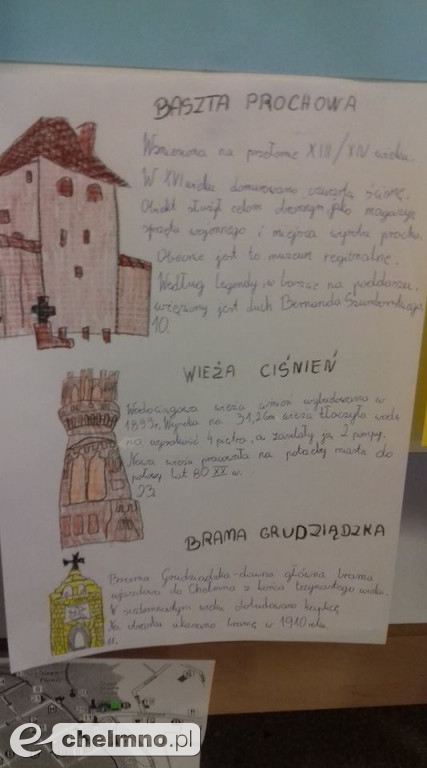 BASZTA PROCHOWA
Wzniesiona na przełomie XIII/XIV wieku.
W XVI wieku domurowano czwartą ścianę.
Obiekt służył celom obronnym, jako magazyn
sprzętu wojennego i miejsce wyrobu prochu.
Obecnie jest to muzeum regionalne.
Według legendy w baszcie na poddaszu
więziony jest duch Bernarda
10.
WIEŻA CIŚNIEŃ
Wodociągowa wieża ciśnień wybudowana w
1899r. Wysoka na 31,26m wieża tłoczyła wodę
na wysokość 4 piętra, a zasilały ją 2 pompy.
Nowa wieża pracowała na potrzeby miasta do
połowy lat 80 XX w.
23
BRAMA GRUDZIĄDZKA
Brama Grudziądzka - dawna główna brama
wjazdowa do Chełmna z końca trzynastego wieku.
W siedemnastym wieku dobudowano kaplicę
Na obrazku ukazano bramę w 1910 roku.
11.
e-chelmno.pl